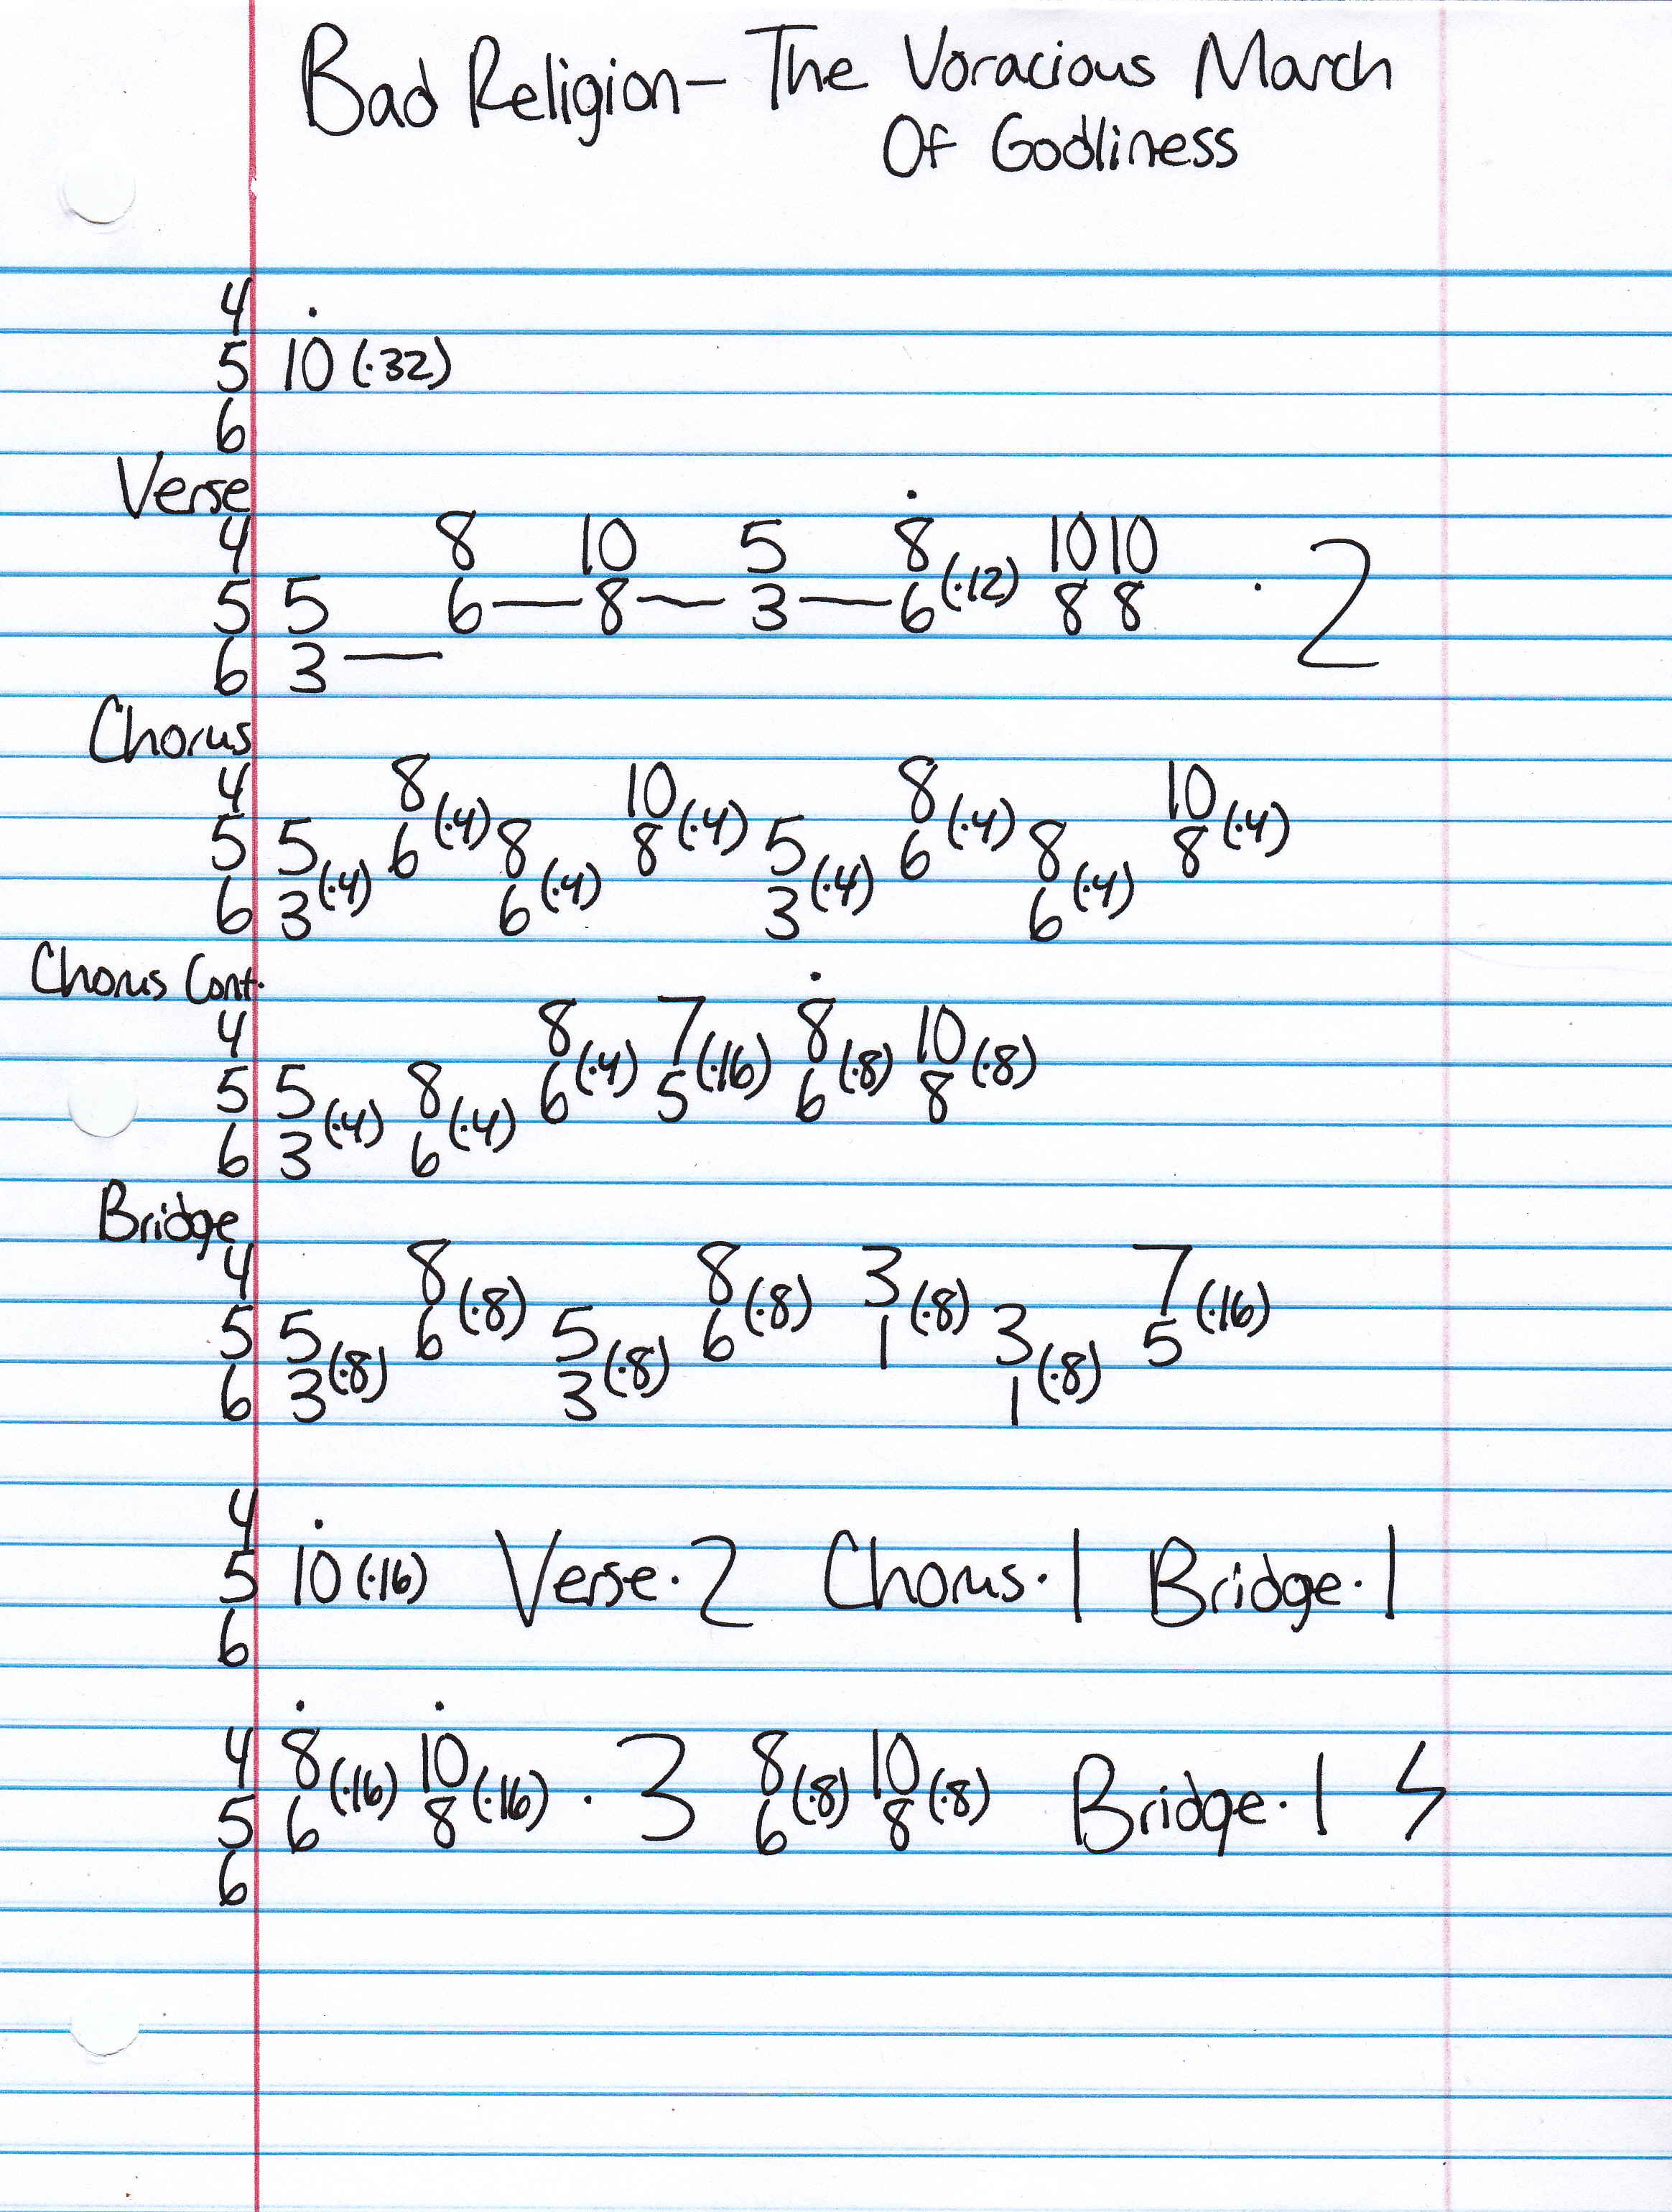 Bad Religion — The Voracious March
Of Godliness
4
5 10 (·32)
6
Verse
4 8 10 5 8 (·12) 10 10
5 5 6 — 8 — 3 — 6 8 8 · 2
6 3 —
Chorus
4 8 (·4) 10 (·4) 8 (·4) 10 (·4)
5 5 (·4) 6 8 (·4) 8 5 (·4) 6 8 (·4) 8
6 3 6 3 6
Chorus Cont.
4 8 (·4) 7 (·16) 8 (·8) 10 (·8)
5 5 (·4) 8 (·4) 6 5 6 8
6 3 6
Bridge
4 8 (·8) 8 (·8) 3 (·8) 7 (·16)
5 5 (·8) 6 5 (·8) 6 1 3 (·8) 5
6 3 3 1
4
5 10 (·16) Verse · 2 Chorus · 1 Bridge · 1
6
4 8 (·16) 10 (·16) · 3 8 (·8) 10 (·8) Bridge · 1
5 6 8 6 8
6